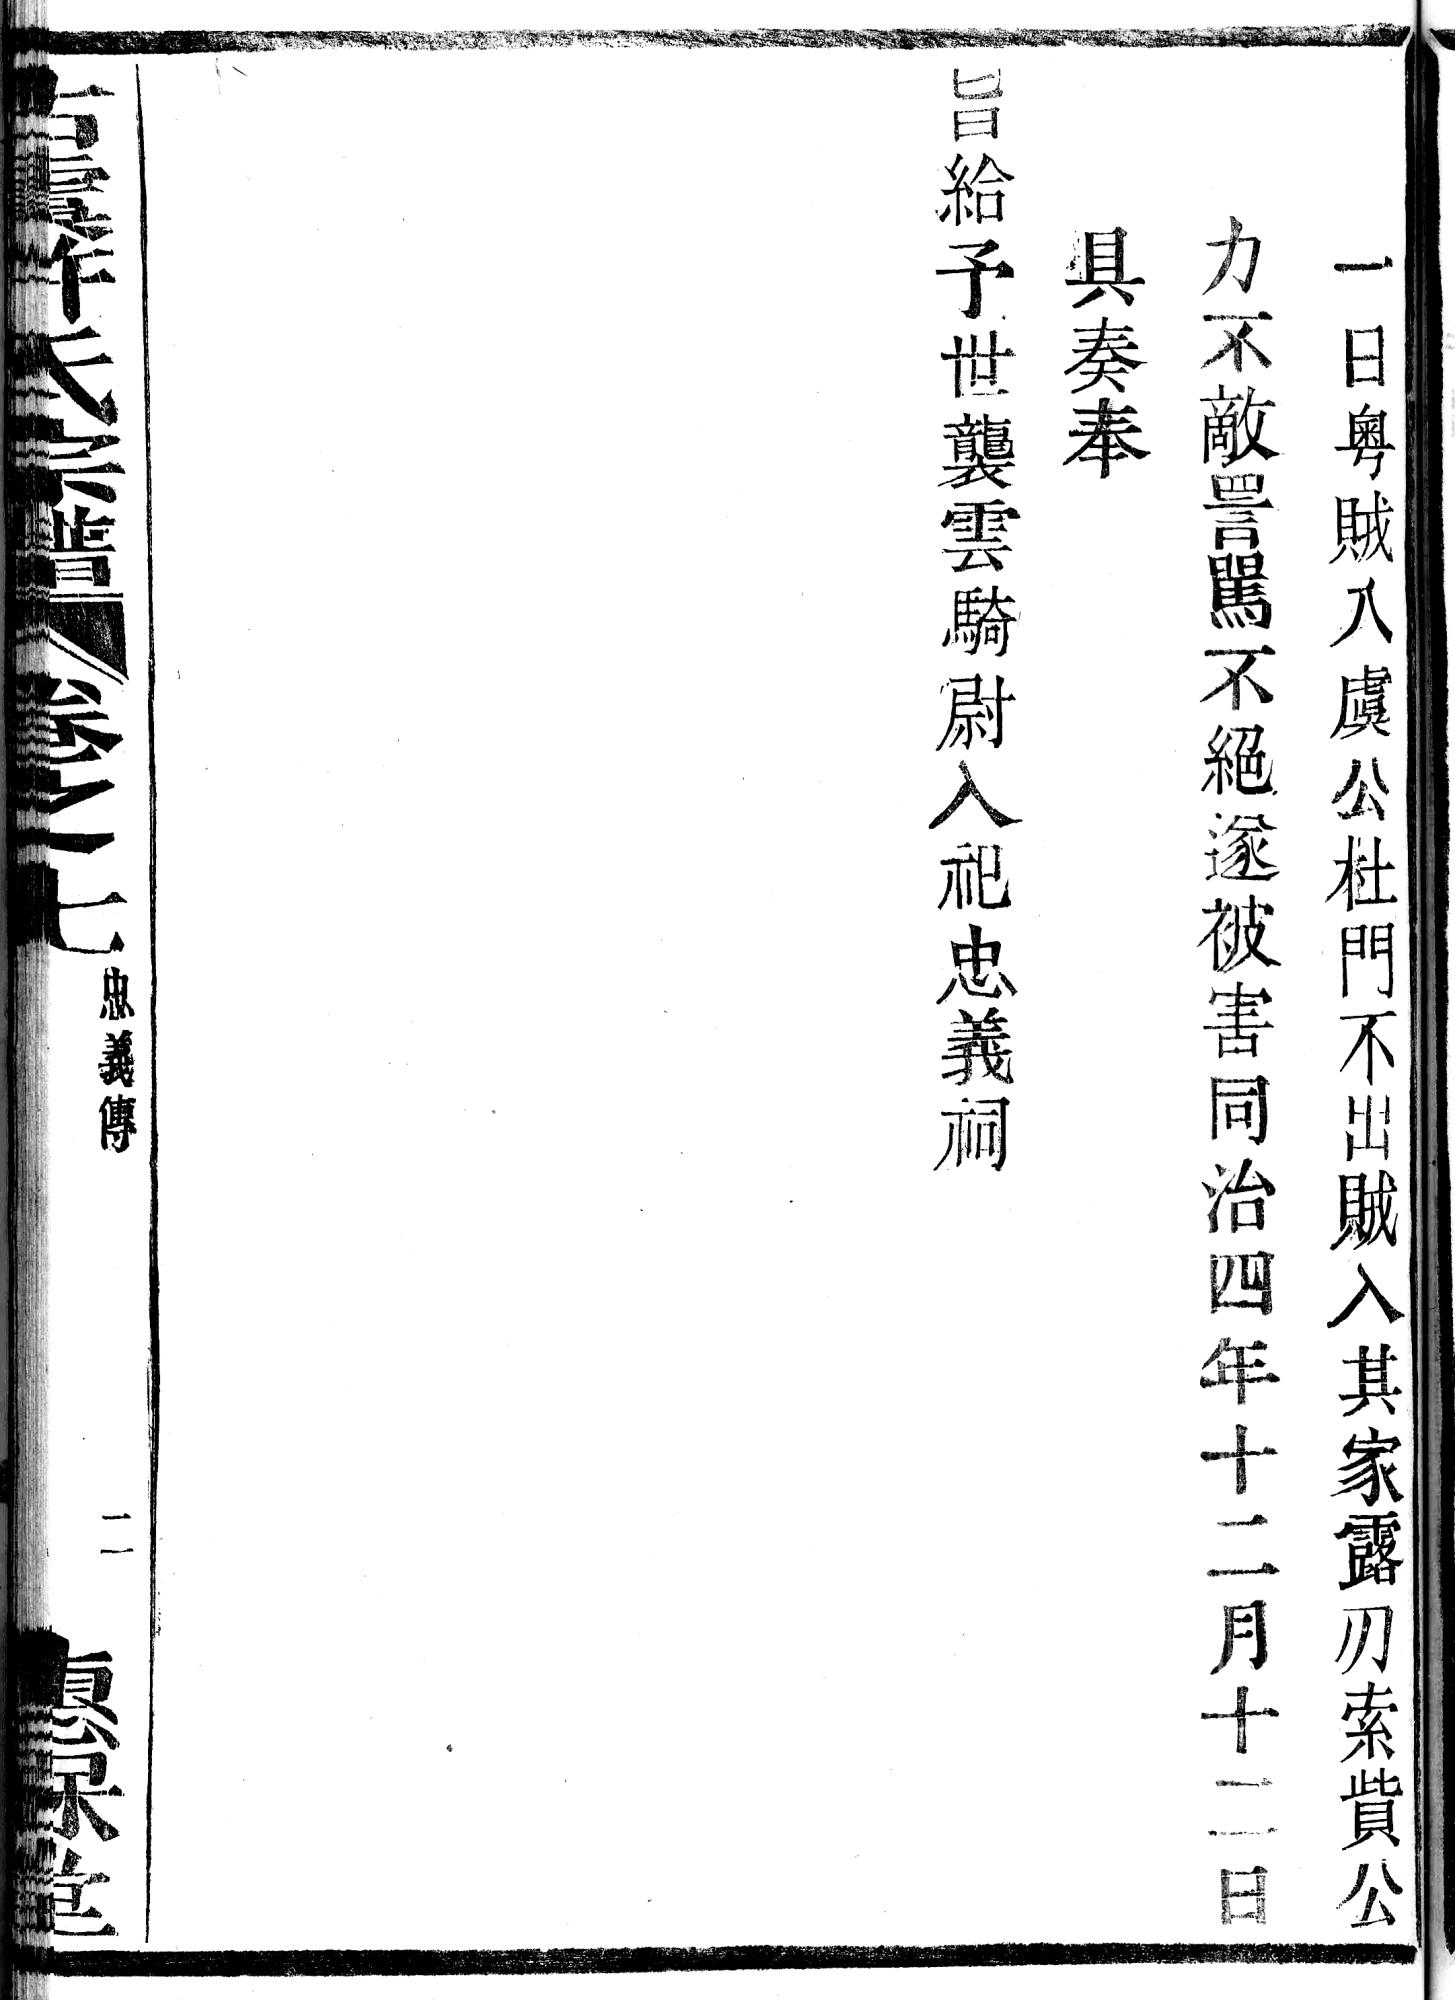 一日粤賊入虞公杜門不出賊入其家露刃索貲公
力不敵詈駡不絕遂被害同治四年十二月十二日
具奏奉
旨給予世襲雲騎尉入祀忠義祠
氏宗譜 卷之七 忠義傳 二 惠保堂